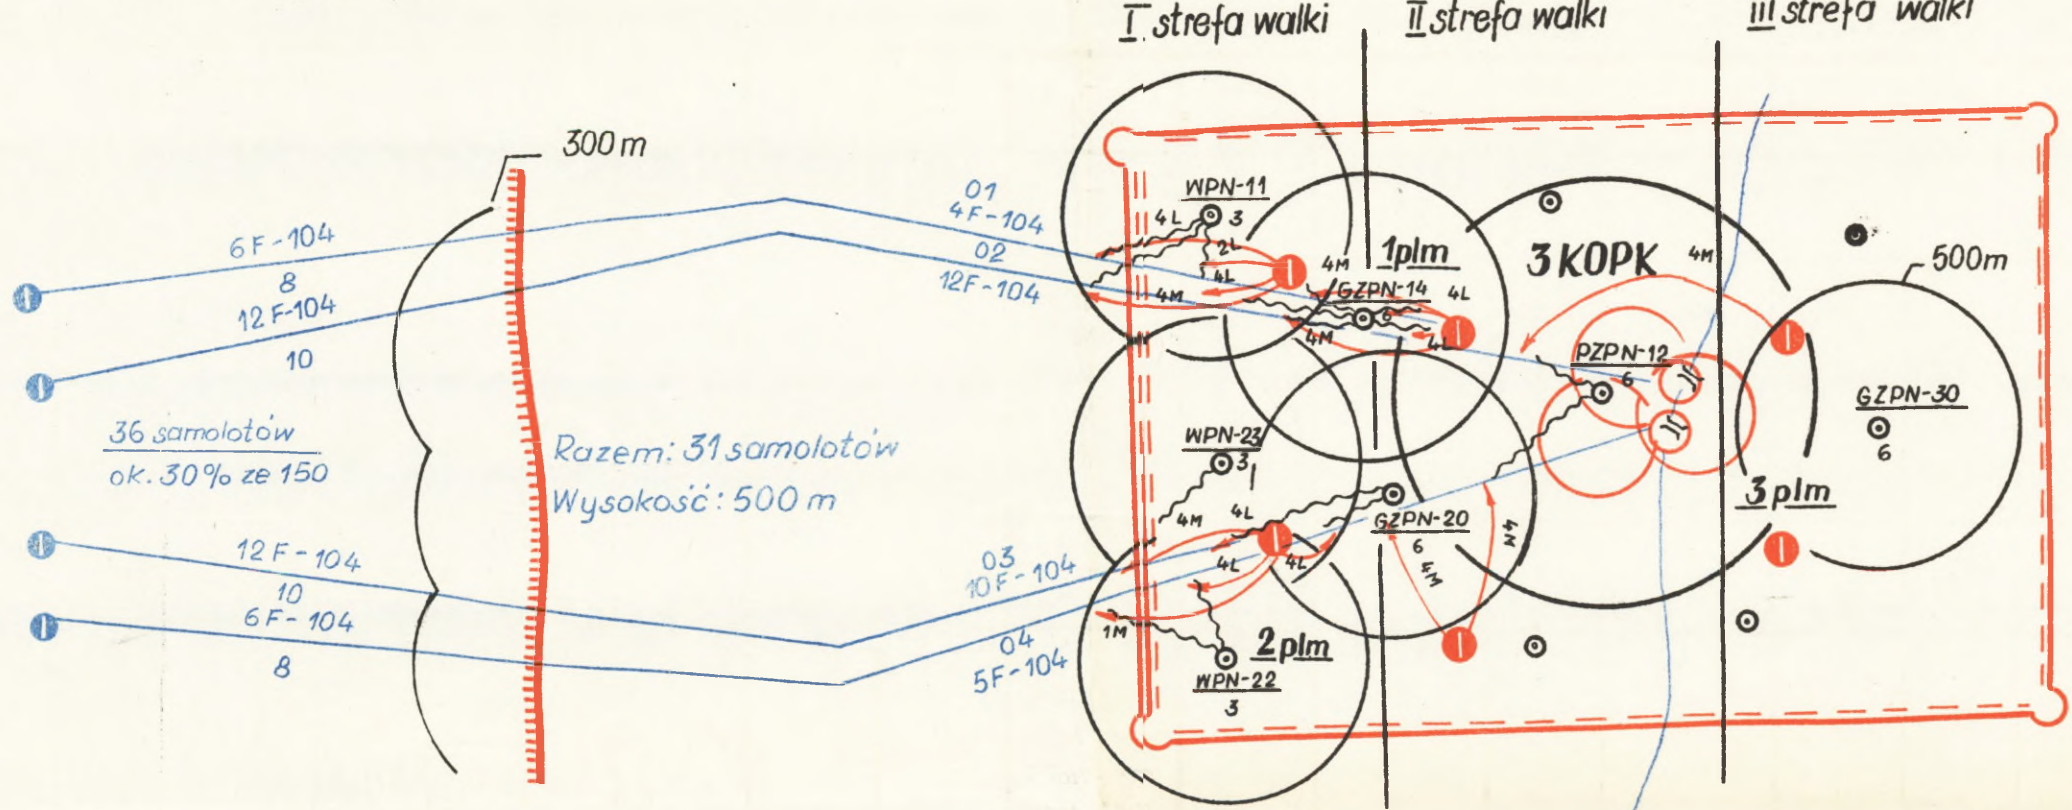 I strefa walki
II strefa walki
III strefa walki
300 m
6 F-104
8
12 F-104
10
36 samolotów
ok. 30% ze 150
12 F-104
10
6 F-104
8
Razem: 31 samolotów
Wysokość: 500 m
01
4 F-104
02
12 F-104
03
10 F-104
04
5 F-104
WPN-11
3
4L
2L
4L
4M
4M
1 plm
GZPN-14
6
4L
4M
4L
3 KOPK
4M
500 m
PZPN-12
6
GZPN-30
6
3 plm
WPN-23
3
4M
4L
4L
4L
GZPN-20
6
4M
4M
1M
2 plm
WPN-22
3